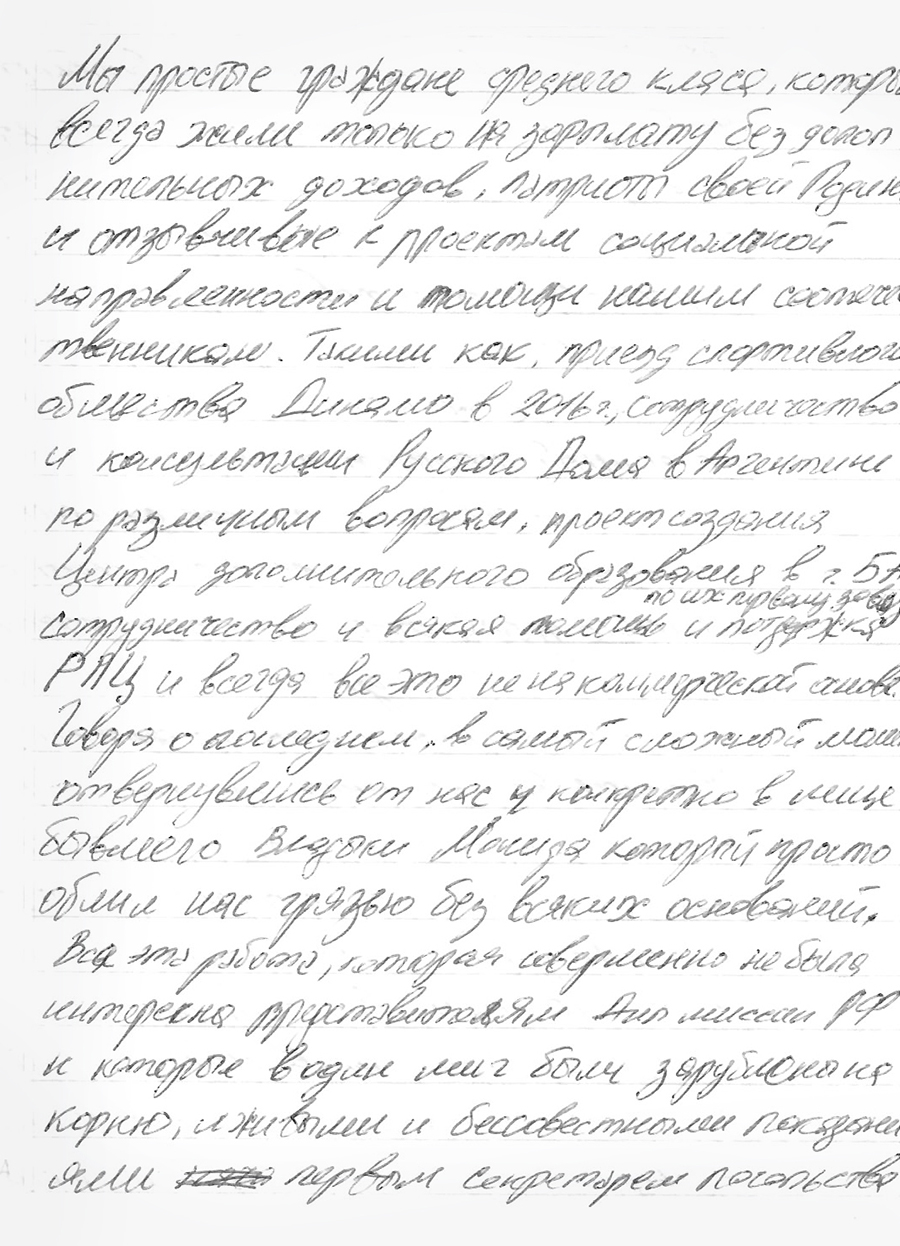 Мы простые граждане среднего кляса, которы
всегда жили только на зарплату без допол
нительных доходов, патриоты своей Родин
и отзывчивые к проектам социальной
направленности и помощи нашим соотече
твенникам. Такими как, приезд спортивного
общества Динамо в 2016 г., сотрудничество
и консультации Русского Дома в Аргентине
по различным вопросам, проект создания
Центра дополнительного образования в г.
по их первому
сотрудничество и всякая помощь и поддержка
РПЦ и всегда все это не на коммерческой основе.
Говоря о последнем, в самый сложный моме
отвернувшись от нас и конкретно в лице
бывшего Владыки который просто
облил нас грязью без всяких оснований.
Вся эта работа, которая совершенно не была
интересна представителям Дип миссии РФ
и которые в один миг были зарублена на
корню, лживыми и бессовестными показани
ями первым секретарем посольства